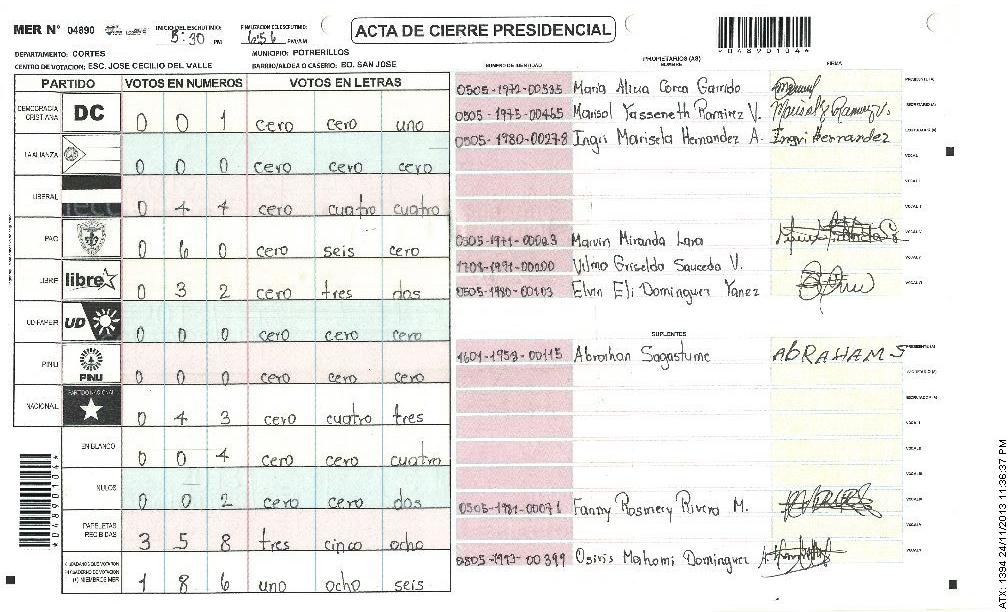 MER N° 04890 INICIO DEL ESCRUTINIO: 5:30 PM FINALIZACION ESCRUTINIO: 6:56 PM/AM
ACTA DE CIERRE PRESIDENCIAL
*04890104*
DEPARTAMENTO: CORTES MUNICIPIO: POTRERILLOS
CENTRO DE VOTACION: ESC. JOSE CECILIO DEL VALLE BARRIO/ALDEA O CASERIO: BO. SAN JOSE
PARTIDO VOTOS EN NUMEROS VOTOS EN LETRAS
DEMOCRACIA CRISTIANA DC 0 0 1 cero cero uno
LA ALIANZA 0 0 0 cero cero cero
LIBERAL 0 4 4 cero cuatro cuatro
PAC 0 6 0 cero seis cero
LIBRE libre 0 3 2 cero tres dos
UD FAPER UD 0 0 0 cero cero cero
PINU PINU 0 0 0 cero cero cero
NACIONAL PARTIDO NACIONAL 0 4 3 cero cuatro tres
EN BLANCO 0 0 4 cero cero cuatro
NULOS 0 0 2 cero cero dos
PAPELETAS RECIBIDAS 3 5 8 tres cinco ocho
CIUDADANOS QUE VOTARON EN CUADERNO DE VOTACION (+) MIEMBROS MER 1 8 6 uno ocho seis
*04890104*
PROPIETARIOS (AS)
NUMERO DE IDENTIDAD NOMBRE FIRMA
0505-1972-00535 Maria Alicia Corea Garrido PRESIDENTE (A)
0505-1975-00465 Marisol Yasseneth Ramirez V. Marisol Y Ramirez V. SECRETARIO (A)
0505-1980-00278 Ingri Marisela Hernandez A. Ingri Hernandez ESCRUTADOR (A)
VOCAL I
VOCAL II
VOCAL III
Marvin Miranda Lara
Vilma Griselda Sauceda V.
0505-1980-00103 Elvin Eli Dominguez Yanez
SUPLENTES
1601-1958-00115 Abrahan Sagastume ABRAHAM S PRESIDENTE (A)
SECRETARIO (A)
ESCRUTADOR (A)
VOCAL I
VOCAL II
VOCAL III
0505-1981-00071 Fanny Rosmery Rivera M.
0505-1993-00399 Osiris Mahomi Dominguez
ATX: 1394 24/11/2013 11:36:37 PM